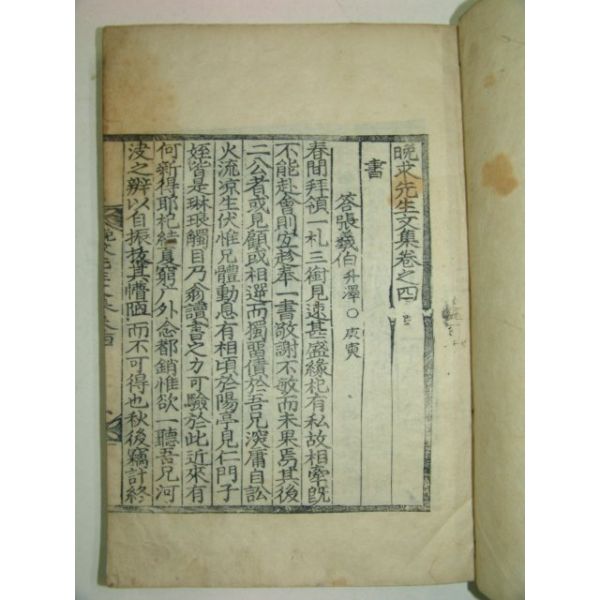 晩求先生文集卷之四
書
答張羲伯升澤○庚寅
春間拜領一札三銜見速甚盛緣𣏌有私故相牽旣
不能赴會則宜趁奉一書敬謝不敏而未果焉其後
二公者或見顧或相選而獨留債於吾兄深庸自訟
火流凉生伏惟兄體動息有相頃於陽亭見仁門子
姪皆是琳琅觸目乃翁讀書之力可驗於此近來有
何新得耶𣏌結夏窮八外念都銷惟欲一聽吾兄河
淩之辨以自振拔其懵陋而不可得也秋後竊計終